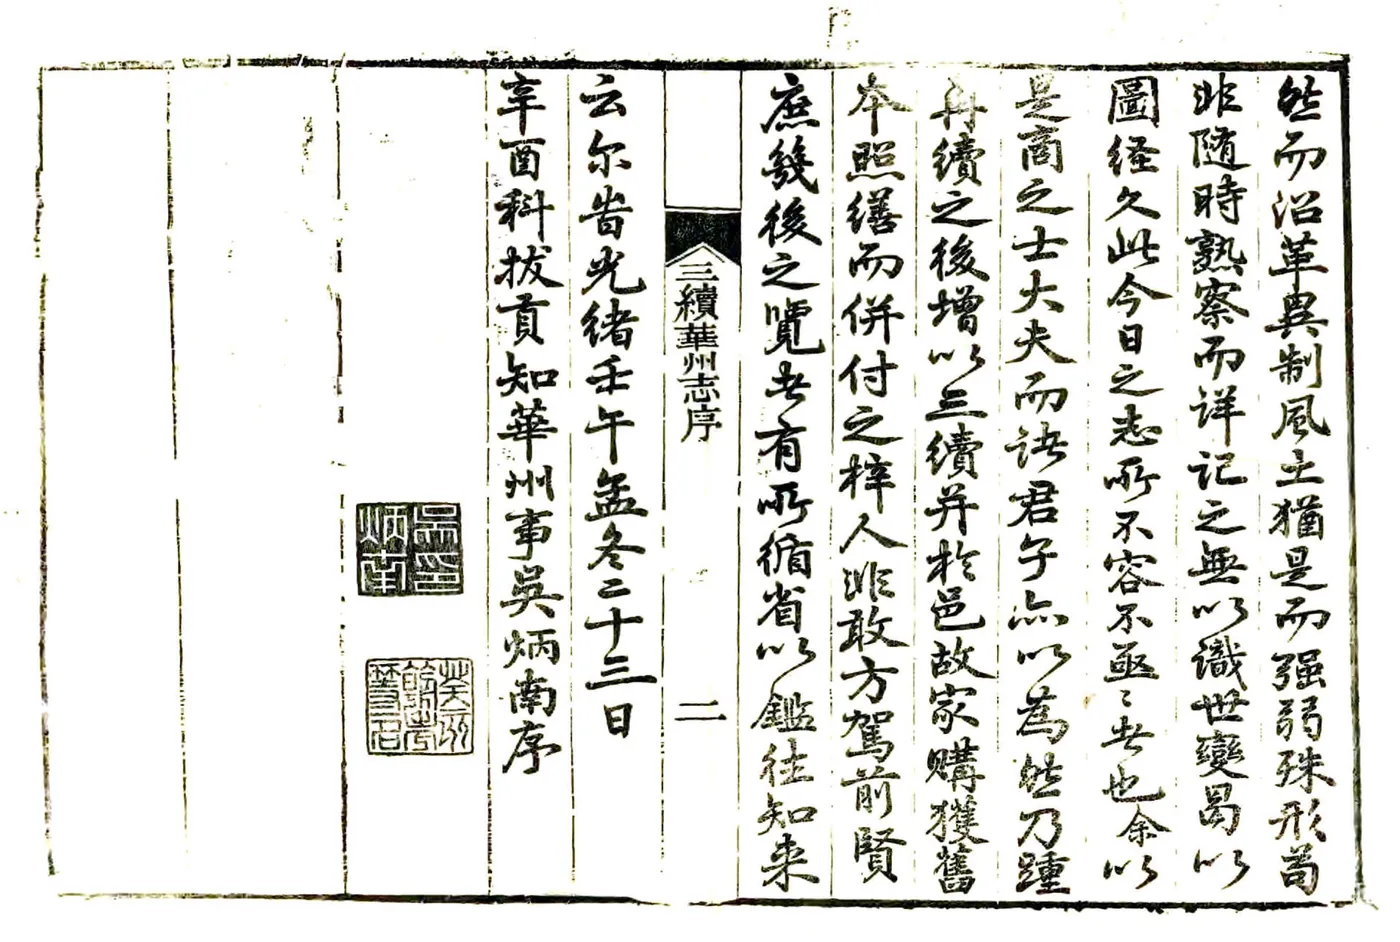 然而沿革異制風土猶是而强弱殊形苟
非隨時熟察而详记之無以識世變曷以
圖経久此今日之志所不容不亟〻者也余以
是商之士大夫而诸君子亦以為然乃踵
再續之後增以三續并於邑故家購獲舊
本照繕而併付之梓人非敢方駕前賢
庶幾後之覽者有所循省以鑑往知来
三續華州志序
二
云尔旹光緒壬午孟冬二十三日
辛酉科拔貢知華州事吳炳南序
吳印炳南